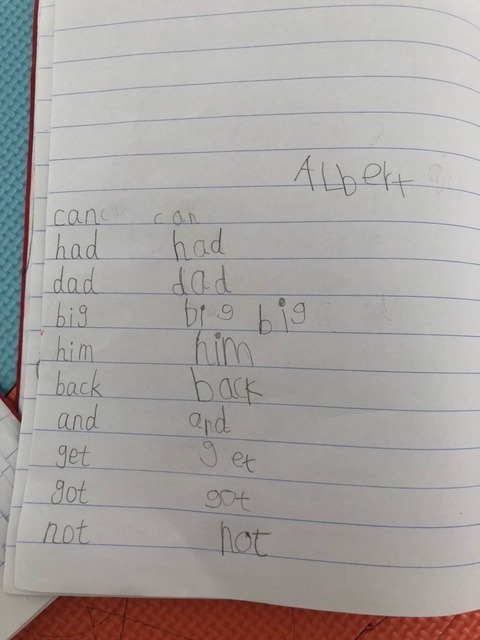 ALbert
can can can
had had
dad dad
big big big
him him
back back
and and
get get
got got
not not